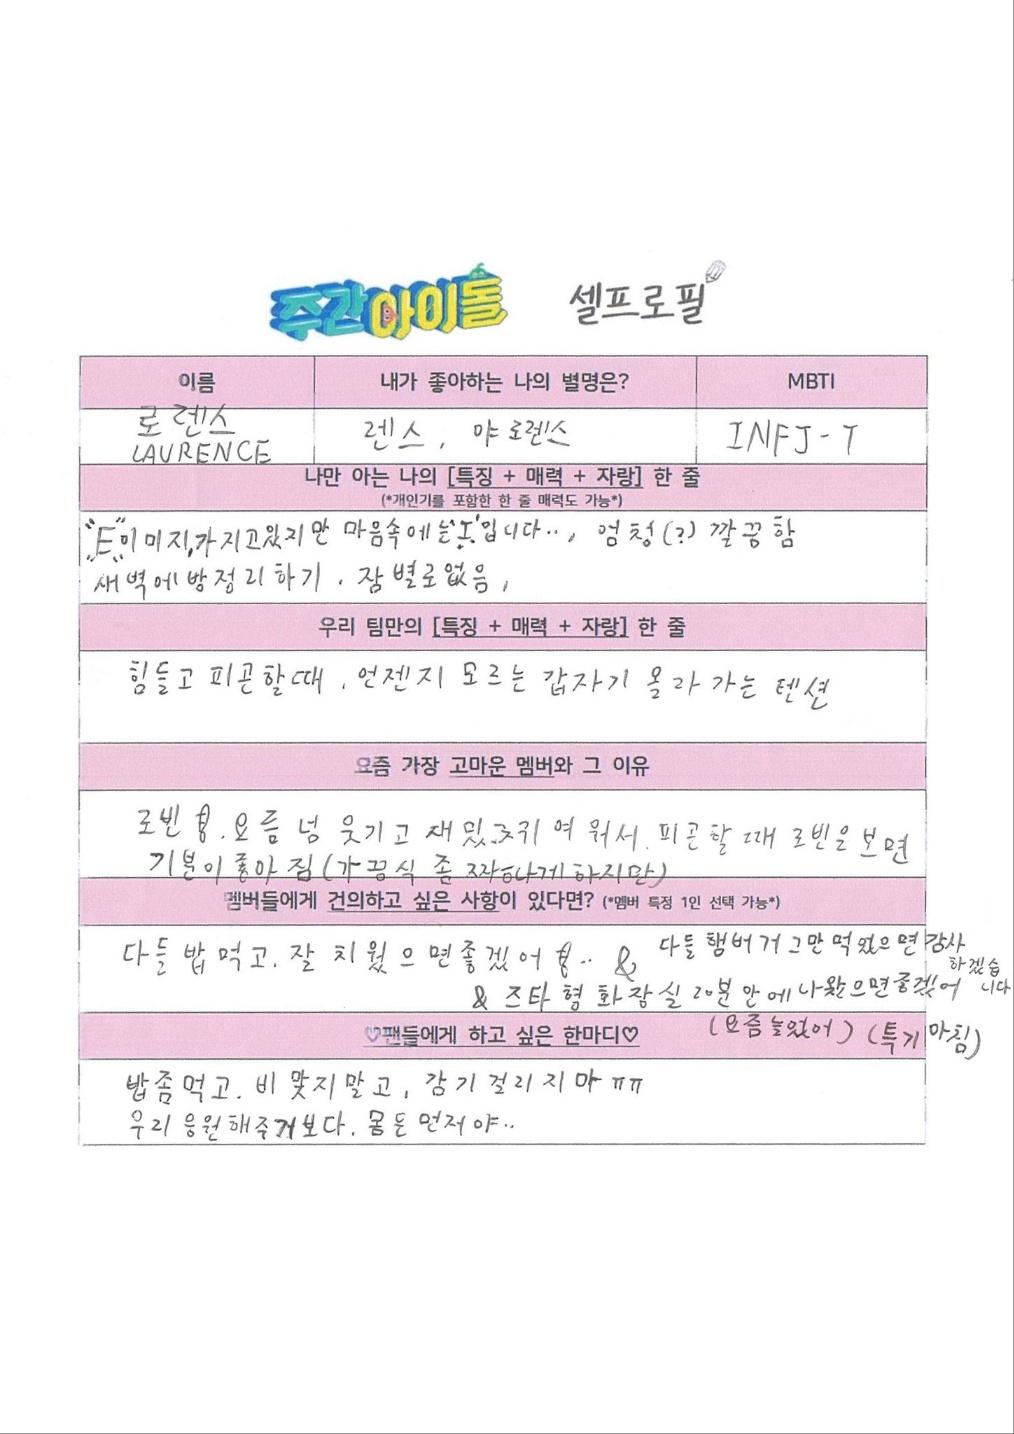 주간아이돌 셀프로필
이름 내가 좋아하는 나의 별명은? MBTI
로렌스
LAURENCE
렌스, 야 로렌스
INFJ-T
나만 아는 나의 [특징 + 매력 + 자랑] 한 줄
(*개인기를 포함한 한 줄 매력도 가능*)
"E"이미지,가지고있지만 마음속에는 "I"입니다.., 엄청(?) 깔끔함
새벽에 방정리하기. 잠 별로없음,
우리 팀만의 [특징 + 매력 + 자랑] 한 줄
힘들고 피곤할때, 언젠지 모르는 갑자기 올라가는 텐션
요즘 가장 고마운 멤버와 그 이유
로빈 요즘 넘 웃기고 재밌고 귀여워서. 피곤할 때 로빈을 보면
기분이좋아짐 (가끔식 좀 짜증나게 하지만)
멤버들에게 건의하고 싶은 사항이 있다면? (*멤버 특정 1인 선택 가능*)
다들 밥먹고. 잘 치웠으면좋겠어 .. & 다들 햄버거 그만 먹었으면 감사
하겠습
니다
& 즈타 형 화장실 20분 안에 나왔으면좋겠어
(요즘 늘었어) (특기 아침)
♡팬들에게 하고 싶은 한마디♡
밥좀먹고. 비 맞지말고, 감기걸리지마 ㅠㅠ
우리 응원해주거보다. 몸은 먼저야..